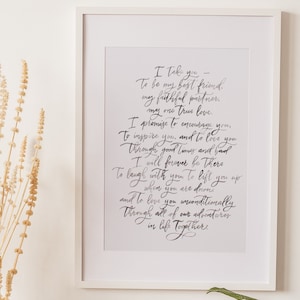 I take you —
To be my best friend,
my faithful partner,
my one true love.
I promise to encourage you,
To inspire you, and to love you
Through good times and bad
I will forever be There
To laugh with you To lift you up
when you are down
and to love you unconditionally
Through all of our adventures
in life Together.